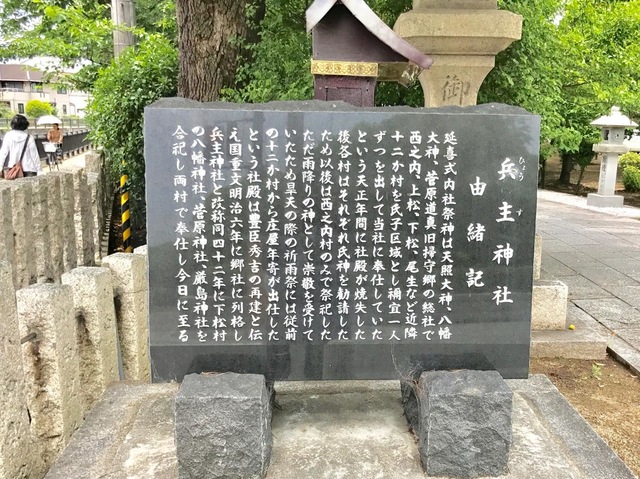 兵主神社
ひょうず
由緒記
延喜式内社祭神は天照大神、八幡
大神、菅原道真旧掃守郷の総社で
西之内、上松、下松、尾生など近隣
十二か村を氏子区域とし禰宜一人
ずつを出して当社に奉仕していた
という天正年間に社殿が焼失した
後各村はそれぞれ氏神を勧請した
ため以後は西之内村のみで祭祀した
ただ雨降りの神として崇敬を受けて
いたため旱天の際の祈雨祭には従前
の十二か村から庄屋年寄が出仕した
という社殿は豊臣秀吉の再建と伝
え国重文明治六年に郷社に列格し
兵主神社と改称同四十二年に下松村
の八幡神社、菅原神社、厳島神社を
合祀し両村で奉仕し今日に至る
御